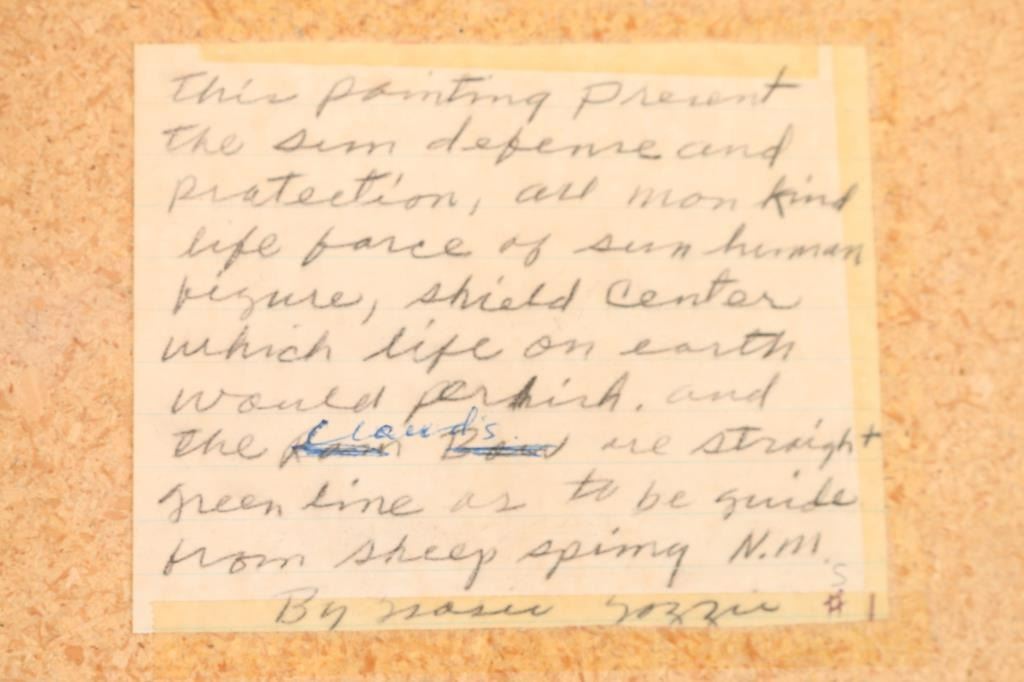 This painting Present
the sun defense and
protection, all man kind
life force of sun human
figure, shield Center
which life on earth
would perhish. and
the Clouds are straight
green line as to be guide
from sheep spimg N.M.
By Yazzie # 1
S